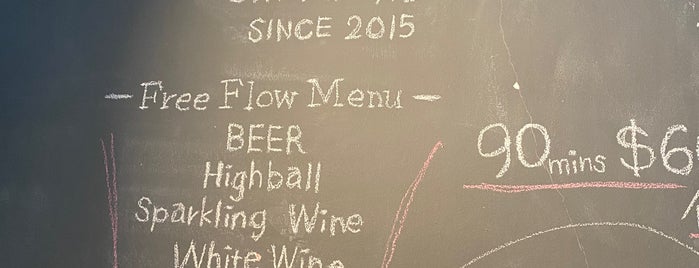 SINCE 2015
— Free Flow Menu —
BEER
Highball
Sparkling Wine
White Wine
90mins $6